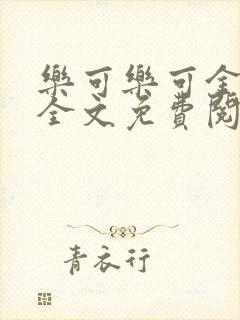 樂可樂可全
全文免費閱
青衣行